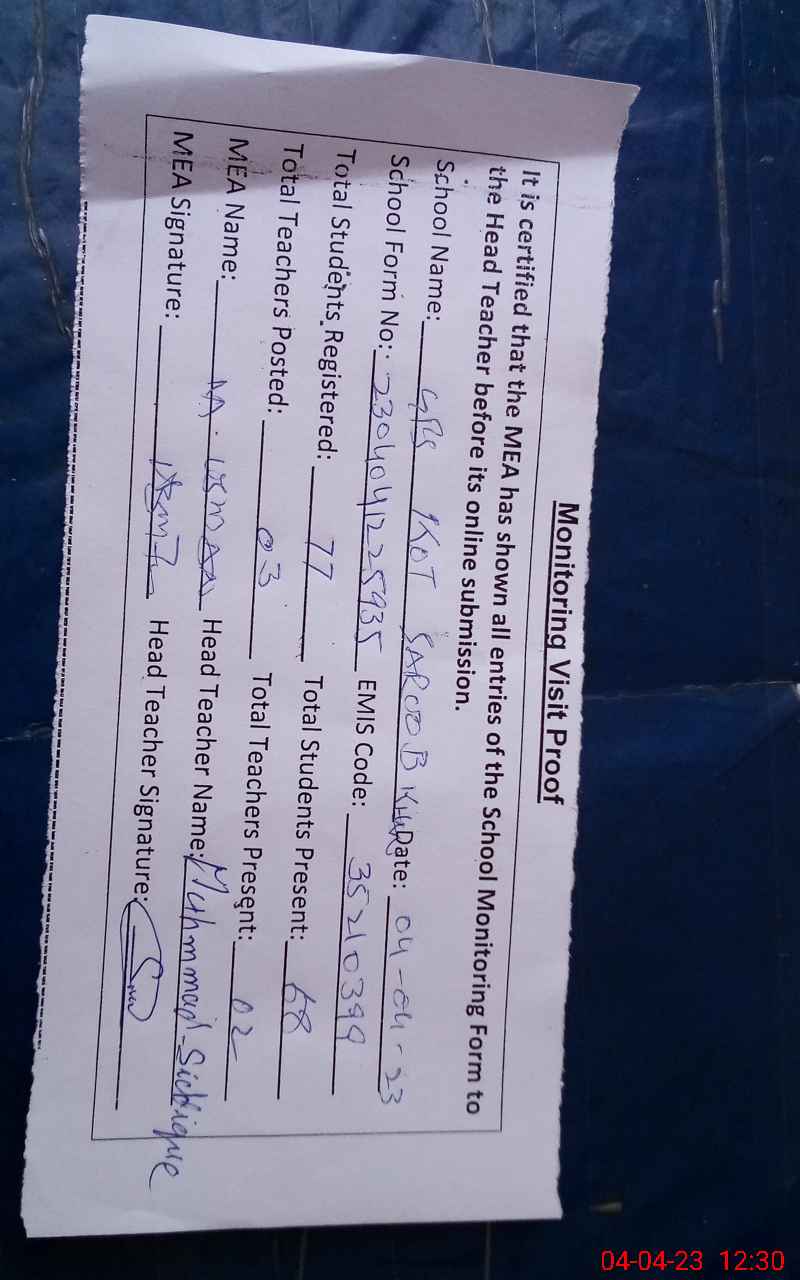 Monitoring Visit Proof
It is certified that the MEA has shown all entries of the School Monitoring Form to
the Head Teacher before its online submission.
School Name: GPS KOT SAROOB Date: 04-04-23
School Form No: 2304041225935 EMIS Code: 35210399
Total Students Registered: 77 Total Students Present: 68
Total Teachers Posted: 03 Total Teachers Present: 02
MEA Name: M. USMAN Head Teacher Name: Muhmmad Siddique
MEA Signature: Head Teacher Signature:
04-04-23 12:30